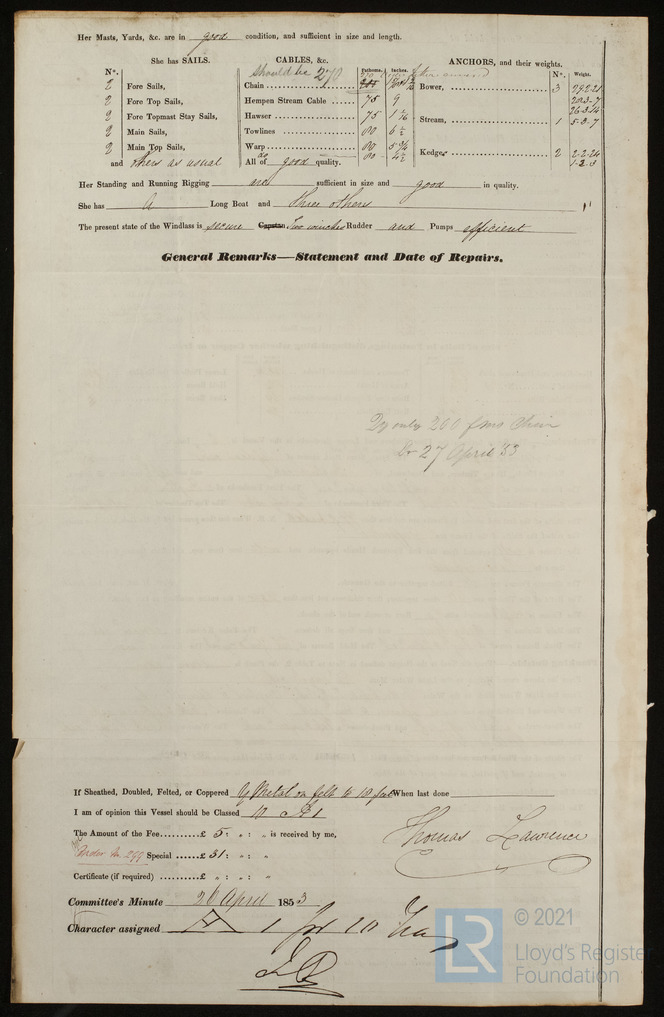 Her Masts, Yards, &c. are in good condition, and sufficient in size and length.
She has SAILS.
N°.
2 Fore Sails,
2 Fore Top Sails,
2 Fore Topmast Stay Sails,
2 Main Sails,
2 Main Top Sails,
and others as usual
CABLES, &c. Fathoms. Inches.
Should be 270
Chain
Hempen Stream Cable 75 9
Hawser 75
Towlines 80 6½
Warp 80
do 80 4½
All of good quality.
ANCHORS, and their weights. N°. Weight.
Bower, 3 29.2.21
20.3.7
26.3.14
Stream, 1 5.3.7
Kedge, 2 2.2.24
1.2.3
Her Standing and Running Rigging are sufficient in size and good in quality.
She has A Long Boat and three others
The present state of the Windlass is secure Capstan, Two winches Rudder and Pumps efficient
General Remarks—Statement and Date of Repairs.
only 200 fms Chain
27 April 53
If Sheathed, Doubled, Felted, or Coppered Y Metal on felt to 18 feet When last done
I am of opinion this Vessel should be Classed 10 A 1
The Amount of the Fee..........£ 5: „ : „ is received by me,
Thomas Lawrence
Order No. 299 Special ......£ 31: „ : „
Certificate (if required) .........£ „ : „ : „
Committee's Minute 26 April 1853
Character assigned A 1 for 10 Yea
© 2021
LR
Lloyd's Register
Foundation